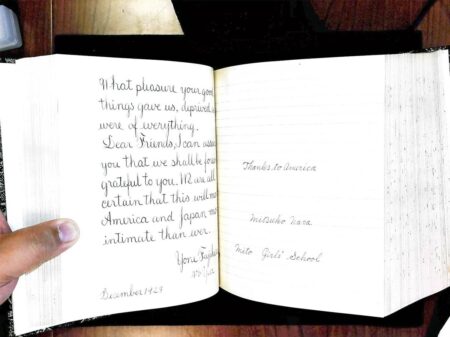 What pleasure your good
things gave us, deprived
were of everything.
Dear Friends, I can
you that we shall be
grateful to you. We are all
certain that this will
America and Japan
intimate than ever.
Yone
December 1929
Thanks to America
Mitsuko
Mito Girls' School